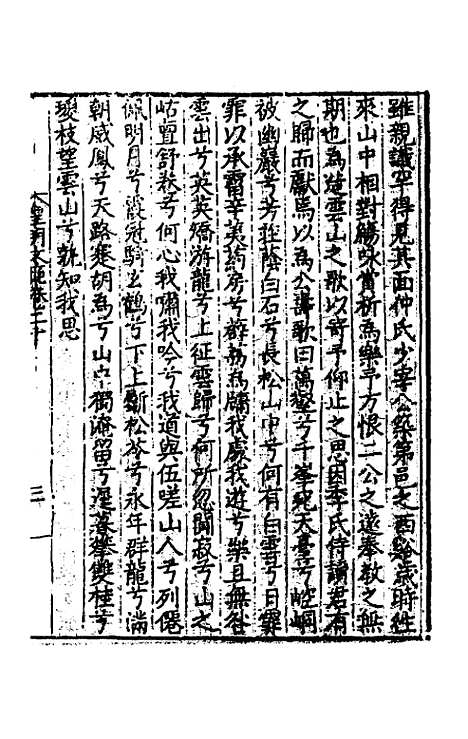 雖親識罕得見其面仲氏少宰公築第邑之西谿歲時往
來山中相對觴詠賞析為樂予方恨二公之遠奉教之無
期也為楚雲山之歌以寄予仰止之思因李氏侍讀君有
之歸而獻焉以為公壽歌曰萬壑兮千峯宛天臺兮崆峒
被幽巖兮芳荭蔭白石兮長松山中兮何有白雲兮日羃
罪以承霤辛荑葯房兮辟為牖我處我遊兮樂且無咎
雲出兮英英矯游龍兮上征雲歸兮何所忽閴寂兮山之
岵亶舒卷兮何心我嘯我吟兮我道與伍嗟山人兮列僊
佩明月兮霞冠騎玄鶴兮下上斸松苓兮永年群龍兮滿
朝威鳳兮天路蹇胡為兮山中獨淹留兮攀雙桂兮
瓊枝望雲山兮孰知我思
皇明文範卷二十
三